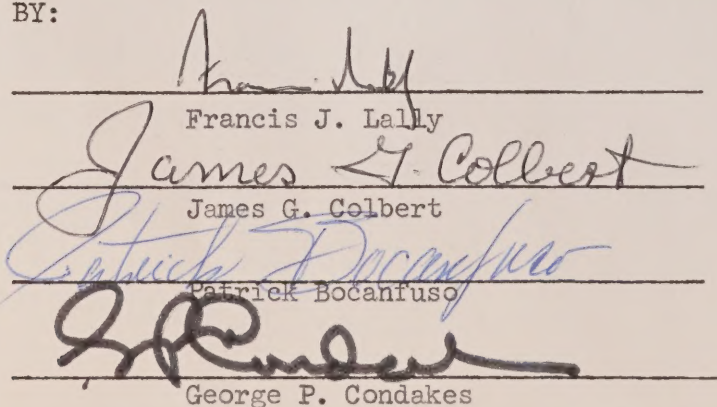 BY:
Francis J. Lally
Francis J. Lally
James G. Colbert
James G. Colbert
Patrick Bocanfuso
Patrick Bocanfuso
G P Condakes
George P. Condakes